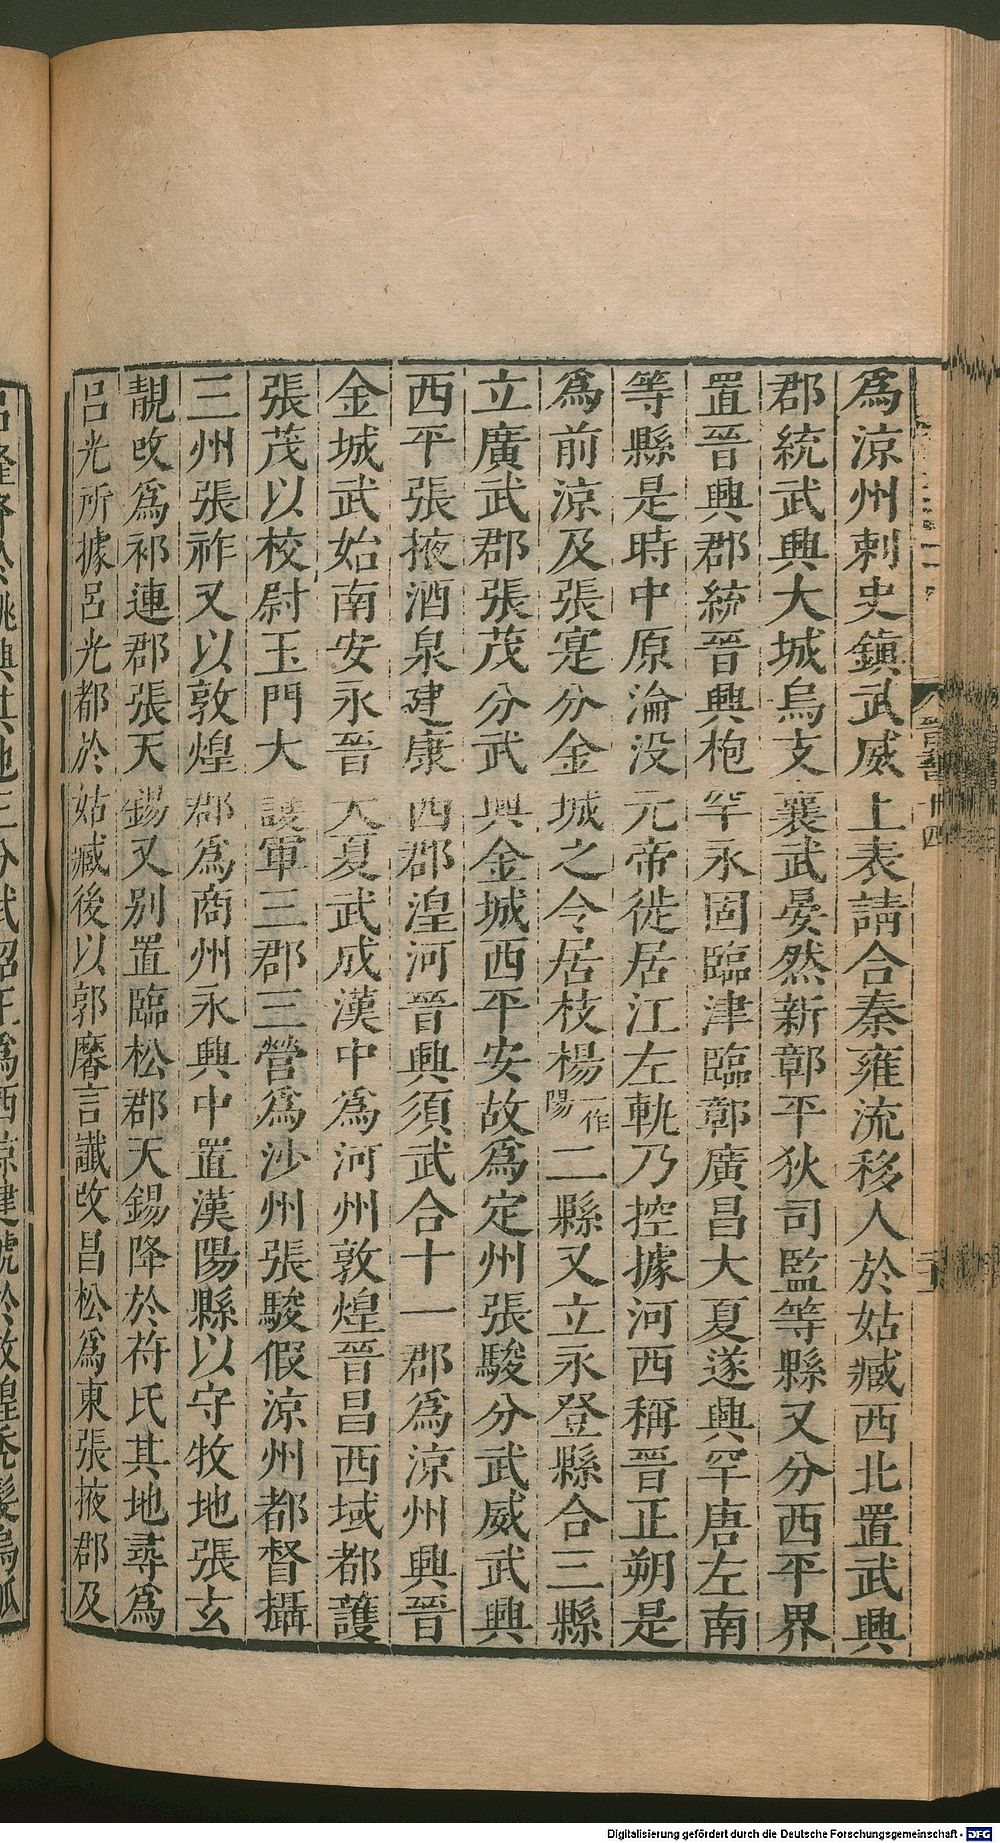 為涼州刺史鎮武威上表請合秦雍流移人於姑臧西北置武興
郡統武興大城烏支襄武晏然新鄣平狄司監等縣又分西平界
置晉興郡統晉興枹罕永固臨津臨鄣廣昌大夏遂興罕唐左南
等縣是時中原淪没元帝徙居江左軌乃控據河西稱晉正朔是
為前涼及張寔分金城之令居枝楊一作陽二縣又立永登縣合三縣
立廣武郡張茂分武興金城西平安故為定州張駿分武威武興
西平張掖酒泉建康西郡湟河晉興須武合十一郡為涼州興晉
金城武始南安永晉大夏武成漢中為河州敦煌晉昌西域都護
張茂以校尉玉門大護軍三郡三營為沙州張駿假涼州都督攝
三州張祚又以敦煌郡為商州永興中置漢陽縣以守牧地張玄
靚改為祁連郡張天錫又別置臨松郡天錫降於苻氏其地尋為
呂光所據呂光都於姑臧後以郭黁言讖改昌松為東張掖郡及
晉書十四
Digitalisierung gefördert durch die Deutsche Forschungsgemeinschaft - DFG